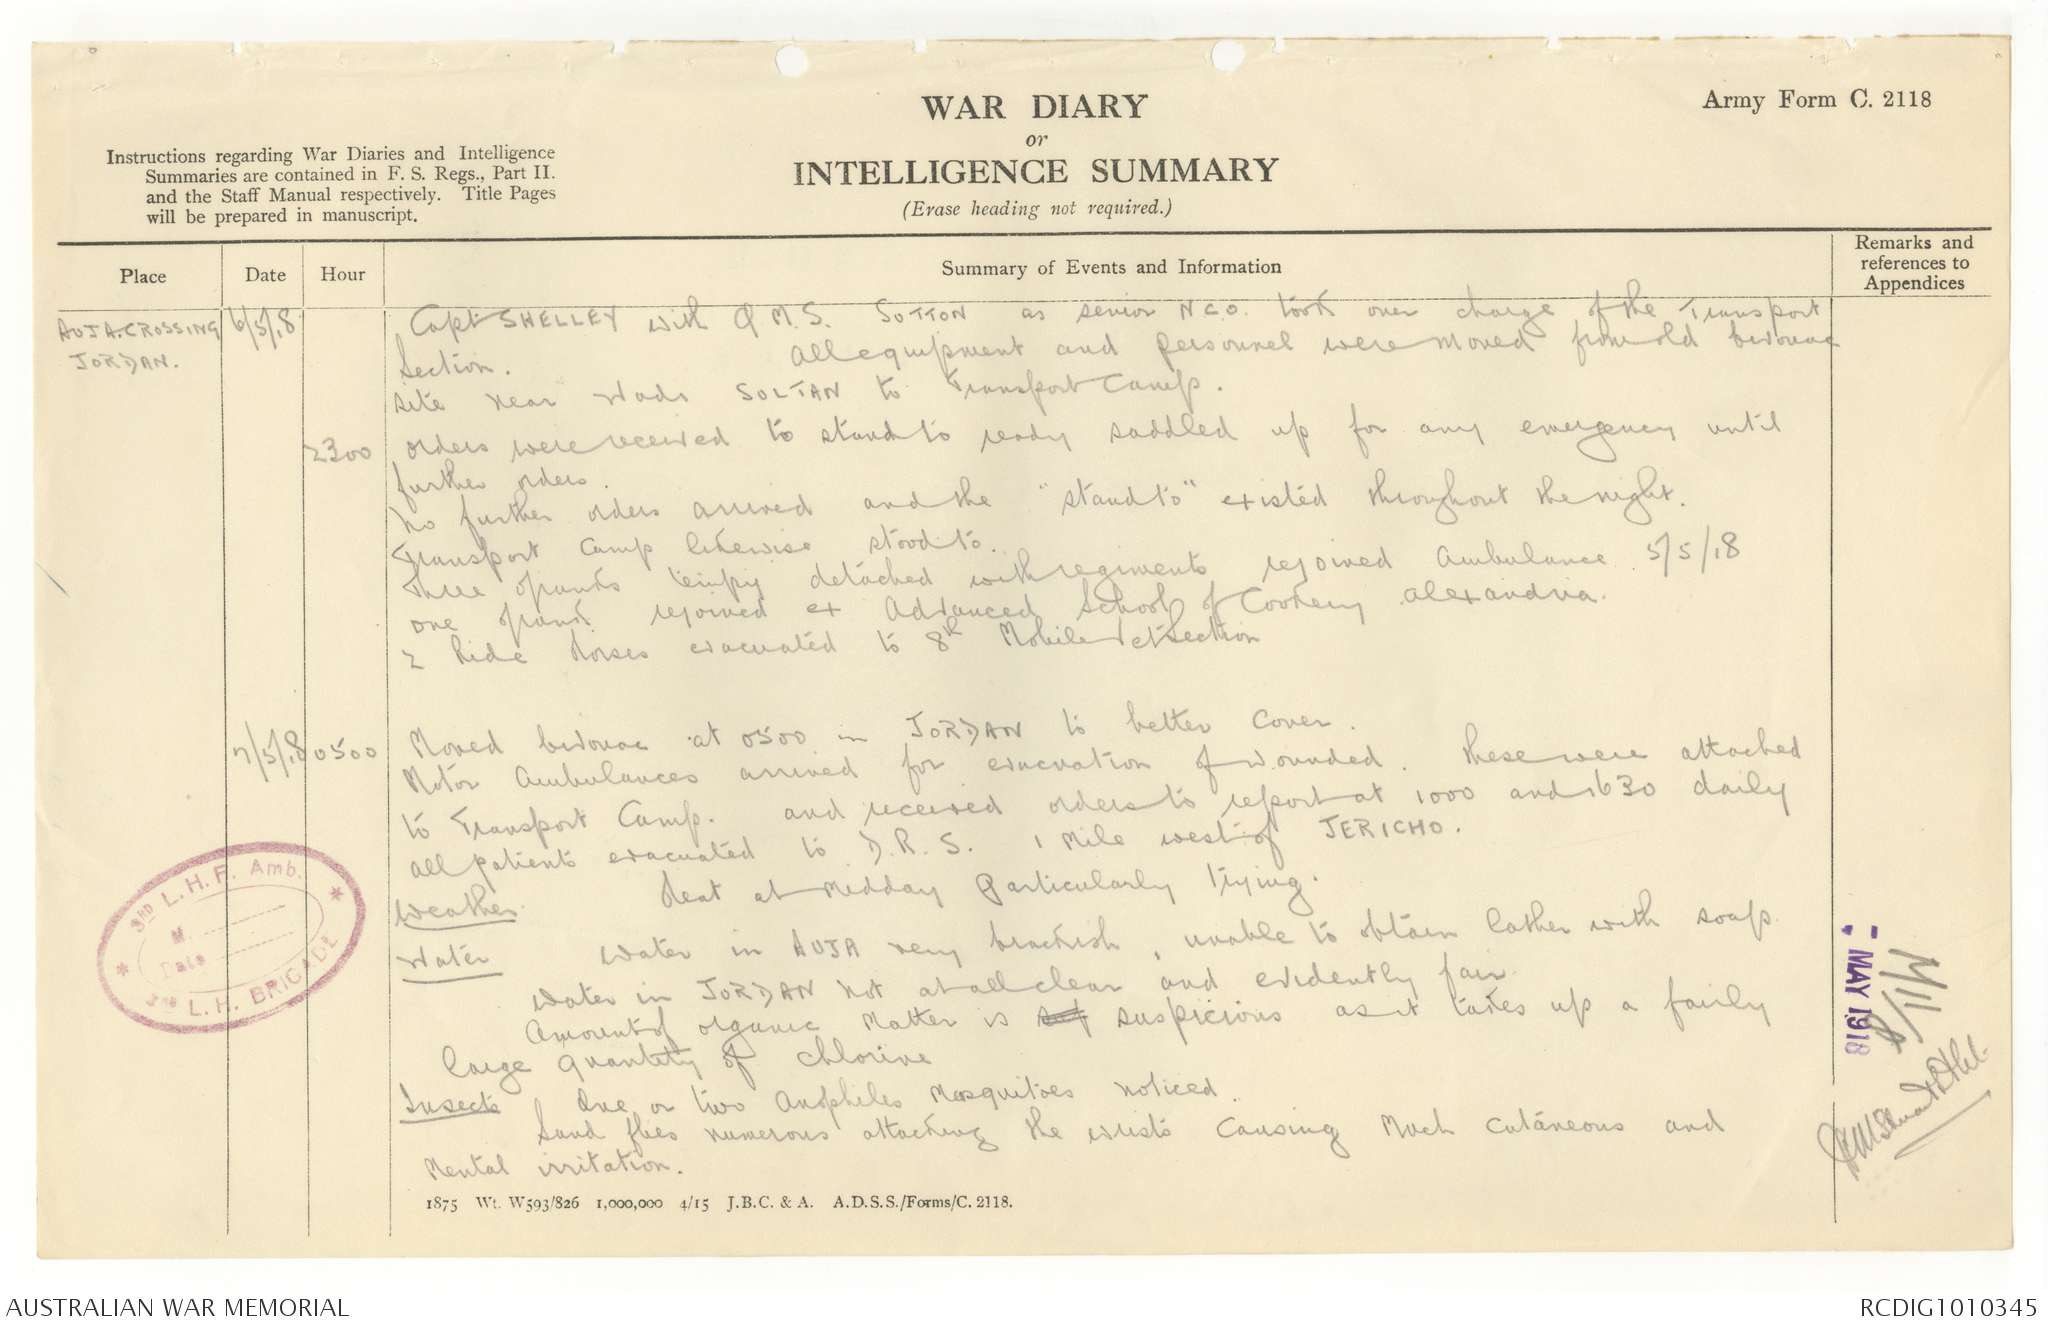 WAR DIARY
or
INTELLIGENCE SUMMARY
(Erase heading not required.)
Army Form C. 2118
Instructions regarding War Diaries and Intelligence
Summaries are contained in F. S. Regs., Part II.
and the Staff Manual respectively. Title Pages
will be prepared in manuscript.
Place
Date
Hour
Summary of Events and Information
Remarks and
references to
Appendices
AUJA.CROSSING
JORDAN.
6/5/18
Capt SHELLEY with Q.M.S. SUTTON as senior NCO. took over charge of the Transport
Section. All equipment and personnel were moved from old bivouac
site near Wadi SULTAN to Transport Camp.
2300
orders were received to stand to ready saddled up for any emergency until
further orders.
No further orders arrived and the "stand to" existed throughout the night.
Transport Camp likewise stood to.
Three opranks tempy detached with regiments rejoined Ambulance 5/5/18
one oprank rejoined ex Advanced School of Cookery Alexandria.
2 Ride horses evacuated to 8th Mobile Vet Section
7/5/18
0500
Moved bivouac at 0500 in JORDAN to better cover.
Motor Ambulances arrived for evacuation of wounded. These were attached
to Transport Camp. and received orders to report at 1000 and 1630 daily
all patients evacuated to D.R.S. 1 Mile west of JERICHO.
Weather Heat at Midday particularly trying.
Water Water in AUJA very brackish, unable to obtain lather with soap
Water in JORDAN not at all clear and evidently fair
Amount of organic Matter is suspicious as it takes up a fairly
large quantity of chlorine
Insects One or two Anophiles Mosquitoes noticed.
Sand flies numerous attacking the wrists causing Much cutaneous and
Mental irritation.
3RD L.H.F. Amb.
M.
Date
3RD L.H. BRIGADE
MAY 1918
1875 Wt. W593/826 1,000,000 4/15 J.B.C. & A. A.D.S.S./Forms/C. 2118.
AUSTRALIAN WAR MEMORIAL
RCDIG1010345